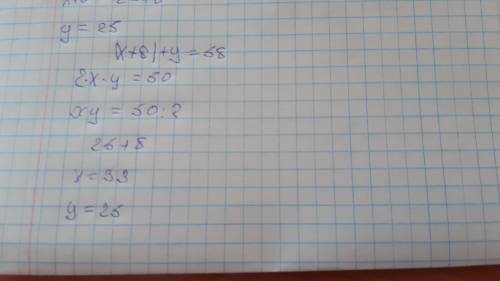 y = 25
(x+8)+y = 58
2·x·y = 50
xy = 50:2
25+8
x = 33
y = 25